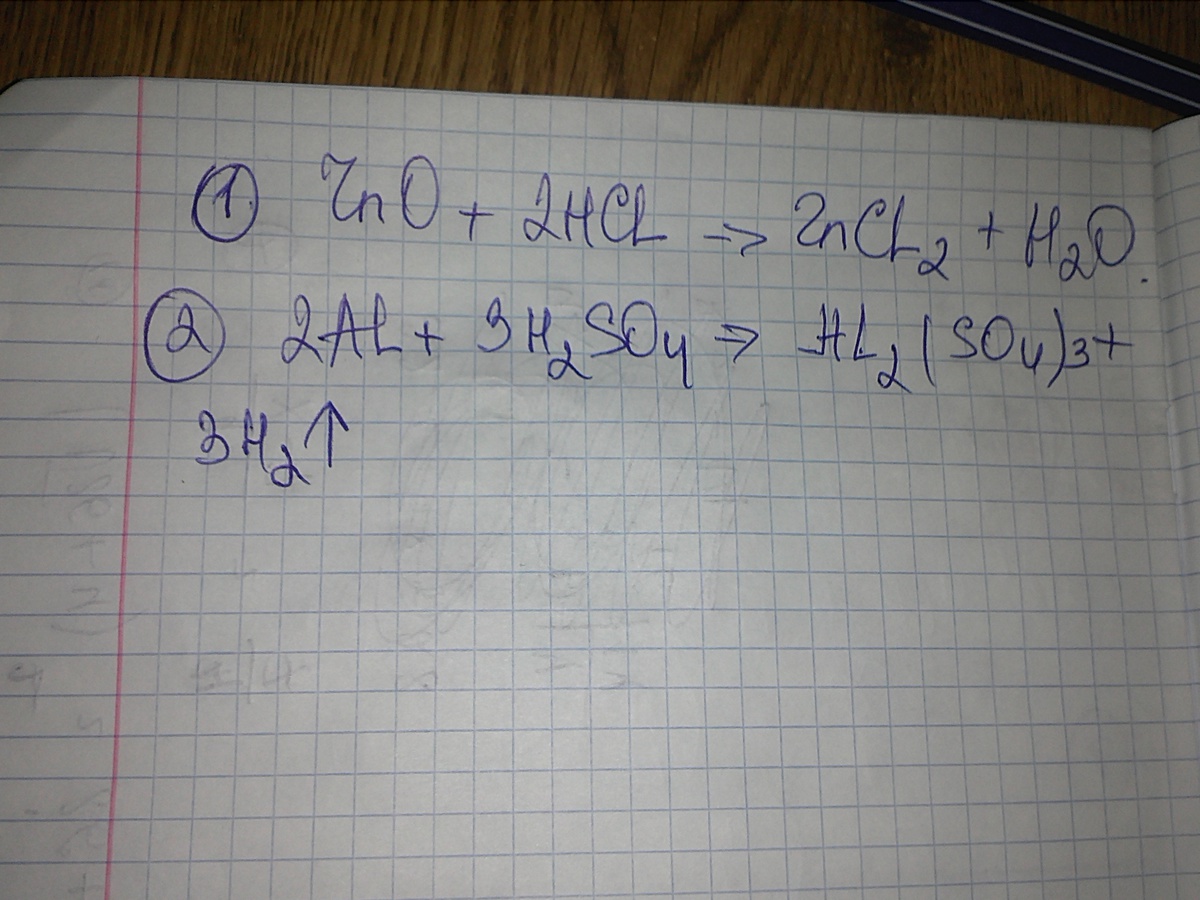 ① ZnO + 2HCl → ZnCl₂ + H₂O.
② 2Al + 3H₂SO₄ → Al₂(SO₄)₃ +
3H₂↑